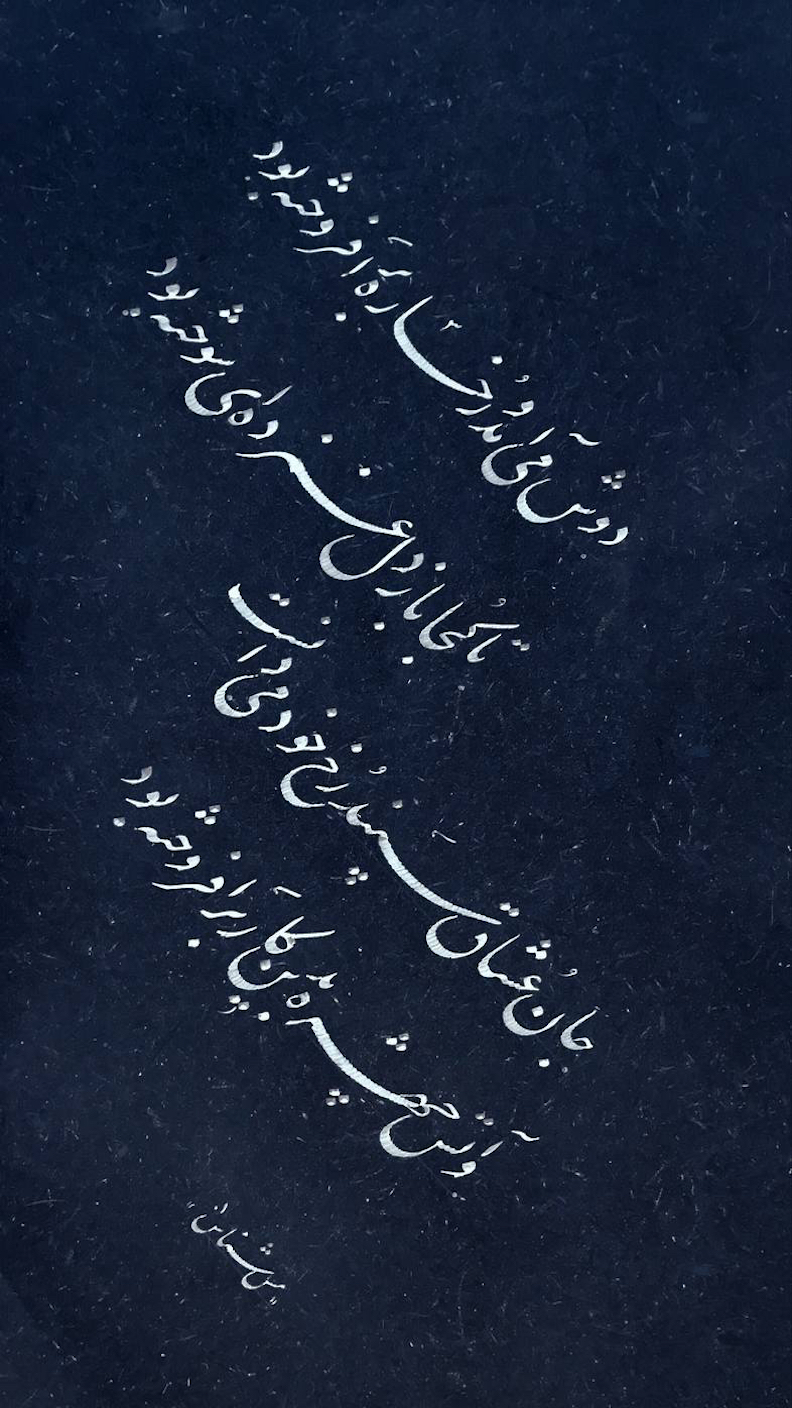 دوش می‌آمد وُ رخساره برافروخته بود
تا کجا باز دل غمزده‌ای سوخته بود
جان عشاق سپند رُخ خود می‌دانست
وآتش چهره بدین کار برافروخته بود